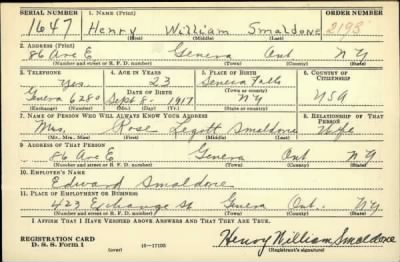 SERIAL NUMBER 1. NAME (Print) ORDER NUMBER
1647 Henry William Smaldone 2193
(First) (Middle) (Last)
2. ADDRESS (Print)
86 Ave E Geneva Ont N Y
(Number and street or R. F. D. number) (Town) (County) (State)
3. TELEPHONE 4. AGE IN YEARS 5. PLACE OF BIRTH 6. COUNTRY OF CITIZENSHIP
Yes 23 Seneca Falls
DATE OF BIRTH (Town or county)
Geneva 6280 Sept 8 - 1917 NY USA
(Exchange) (Number) (Mo.) (Day) (Yr.) (State or country)
7. NAME OF PERSON WHO WILL ALWAYS KNOW YOUR ADDRESS 8. RELATIONSHIP OF THAT PERSON
Mrs. Rose Smaldone Wife
(Mr., Mrs., Miss) (First) (Middle) (Last)
9. ADDRESS OF THAT PERSON
86 Ave E Geneva Ont N Y
(Number and street or R. F. D. number) (Town) (County) (State)
10. EMPLOYER'S NAME
Edward Smaldone
11. PLACE OF EMPLOYMENT OR BUSINESS
423 Exchange St Geneva Ont. N Y
(Number and street or R. F. D. number) (Town) (County) (State)
I AFFIRM THAT I HAVE VERIFIED ABOVE ANSWERS AND THAT THEY ARE TRUE.
REGISTRATION CARD
D. S. S. Form 1 (over) 16-17105 Henry William Smaldone
(Registrant's signature)